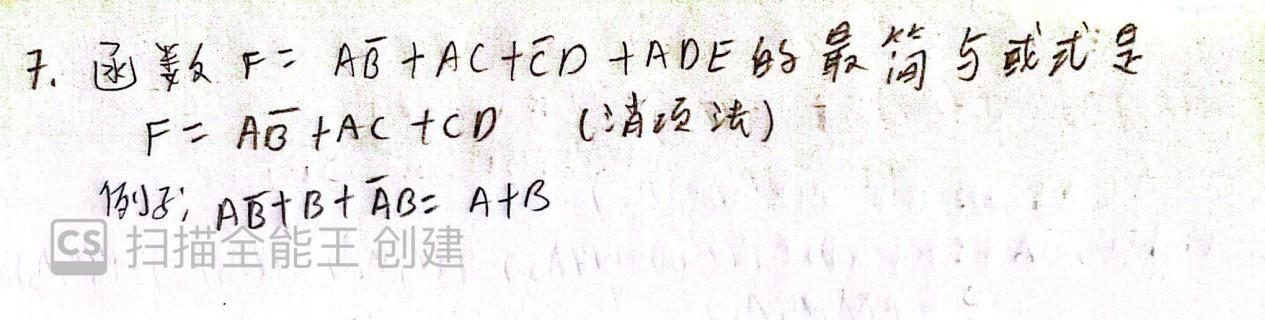 7. 函数 F= AB̅ + AC + C̅D + ADE 的最简与或式是
F= AB̅ + AC + CD (消项法)
例子; AB̅ + B + A̅B = A+B
CS 扫描全能王 创建